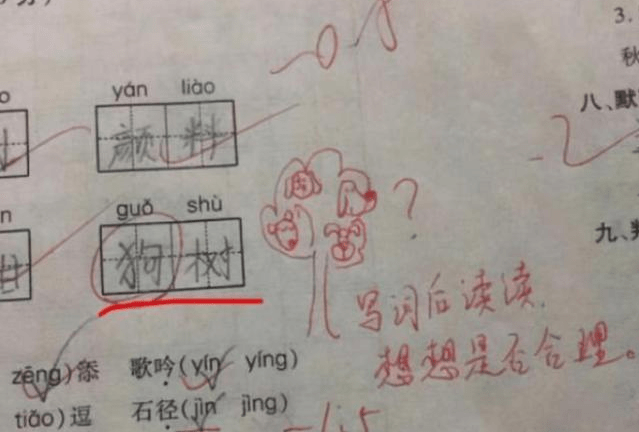 3.
yán liào
秋
颜料
八、默
guǒ shù
狗树
?
九、判
写词后读读,
想想是否合理。
zēng)添 歌吟(yín yíng)
tiāo)逗 石径(jìn jìng)
-1.5